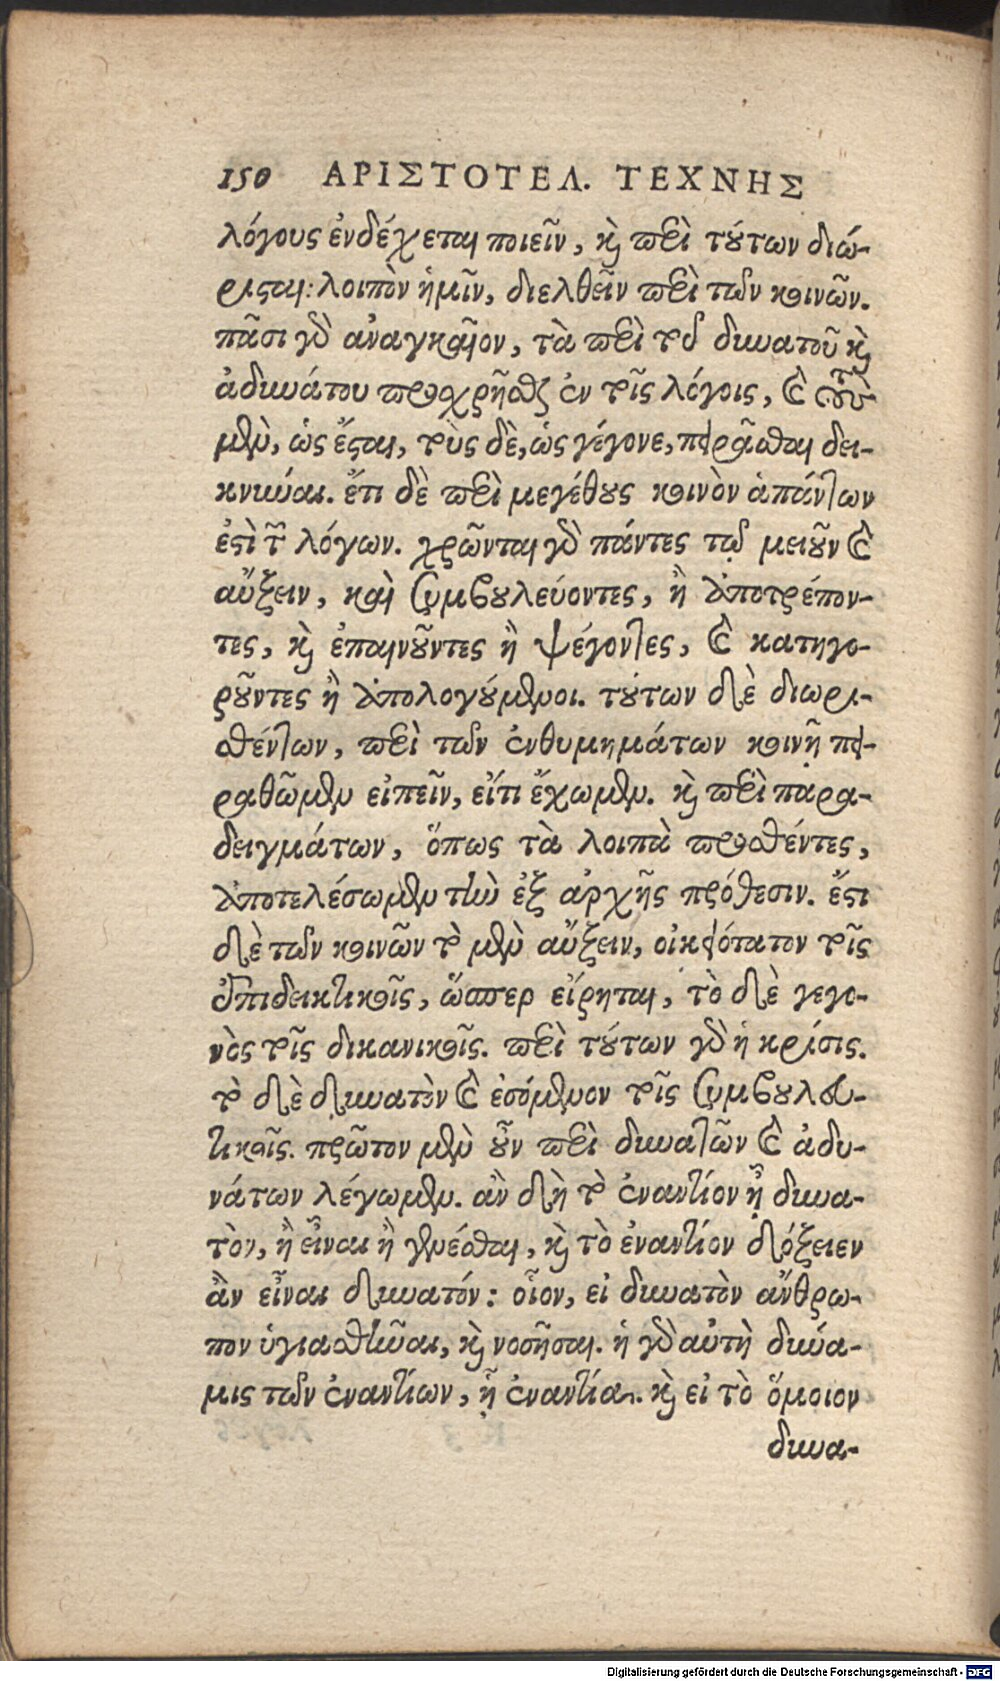 150 ΑΡΙΣΤΟΤΕΛ. ΤΕΧΝΗΣ
λόγους ἐνδέχεται ποιεῖν, καὶ περὶ τούτων διώ-
ρισται: λοιπὸν ἡμῖν, διελθεῖν περὶ τῶν κοινῶν.
πᾶσι γὰρ ἀναγκαῖον, τὰ περὶ τοῦ δυνατοῦ καὶ
ἀδυνάτου προσχρῆσθαι ἐν τοῖς λόγοις, καὶ τοὺς
μὲν, ὡς ἔσται, τοὺς δὲ, ὡς γέγονε, πειρᾶσθαι δει-
κνύναι. ἔτι δὲ περὶ μεγέθους κοινὸν ἁπάντων
ἐστὶ τῶν λόγων. χρῶνται γὰρ πάντες τῷ μειοῦν καὶ
αὔξειν, καὶ συμβουλεύοντες, ἢ ἀποτρέπον-
τες, καὶ ἐπαινοῦντες ἢ ψέγοντες, καὶ κατηγο-
ροῦντες ἢ ἀπολογούμενοι. τούτων δὲ διωρι-
σθέντων, περὶ τῶν ἐνθυμημάτων κοινῇ πει-
ραθῶμεν εἰπεῖν, εἴτι ἔχωμεν. καὶ περὶ παρα-
δειγμάτων, ὅπως τὰ λοιπὰ προσθέντες,
ἀποτελέσωμεν τὴν ἐξ ἀρχῆς πρόθεσιν. ἔστι
δὲ τῶν κοινῶν τὸ μὲν αὔξειν, οἰκειότατον τοῖς
ἐπιδεικτικοῖς, ὥσπερ εἴρηται, τὸ δὲ γεγο-
νὸς τοῖς δικανικοῖς. περὶ τούτων γὰρ ἡ κρίσις.
τὸ δὲ δυνατὸν καὶ ἐσόμενον τοῖς συμβουλευ-
τικοῖς. πρῶτον μὲν οὖν περὶ δυνατῶν καὶ ἀδυ-
νάτων λέγωμεν. ἂν δὴ τὸ ἐναντίον ᾖ δυνα-
τὸν, ἢ εἶναι ἢ γενέσθαι, καὶ τὸ ἐναντίον δόξειεν
ἂν εἶναι δυνατόν: οἷον, εἰ δυνατὸν ἄνθρω-
πον ὑγιασθῆναι, καὶ νοσῆσαι. ἡ γὰρ αὐτὴ δύνα-
μις τῶν ἐναντίων, ᾗ ἐναντία. καὶ εἰ τὸ ὅμοιον
δυνα-
Digitalisierung gefördert durch die Deutsche Forschungsgemeinschaft - DFG